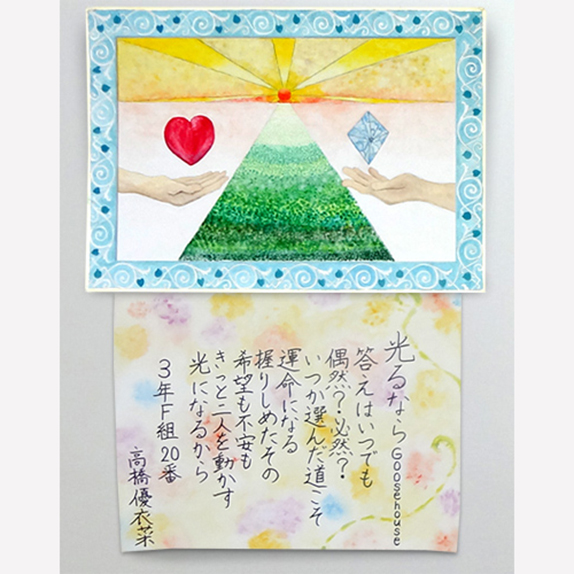 光るなら Goosehouse
答えはいつでも
偶然？必然？
いつか選んだ道こそ
運命になる
握りしめたその
希望も不安も
きっと二人を動かす
光になるから
３年Ｆ組20番
高橋優衣菜